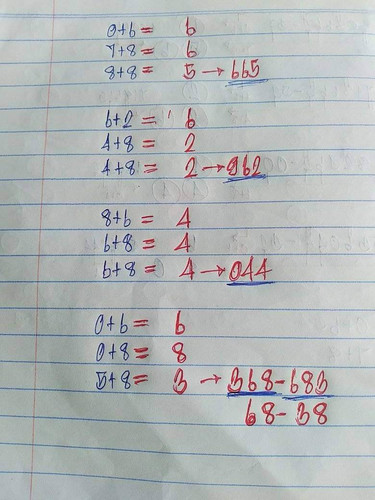 0+6= 6
7+8= 6
8+8= 5→665
6+2= 6
4+8= 2
4+8= 2→962
8+6= 4
6+8= 4
6+8= 4→044
0+6= 6
0+8= 8
5+8= 3→368-683
68-38